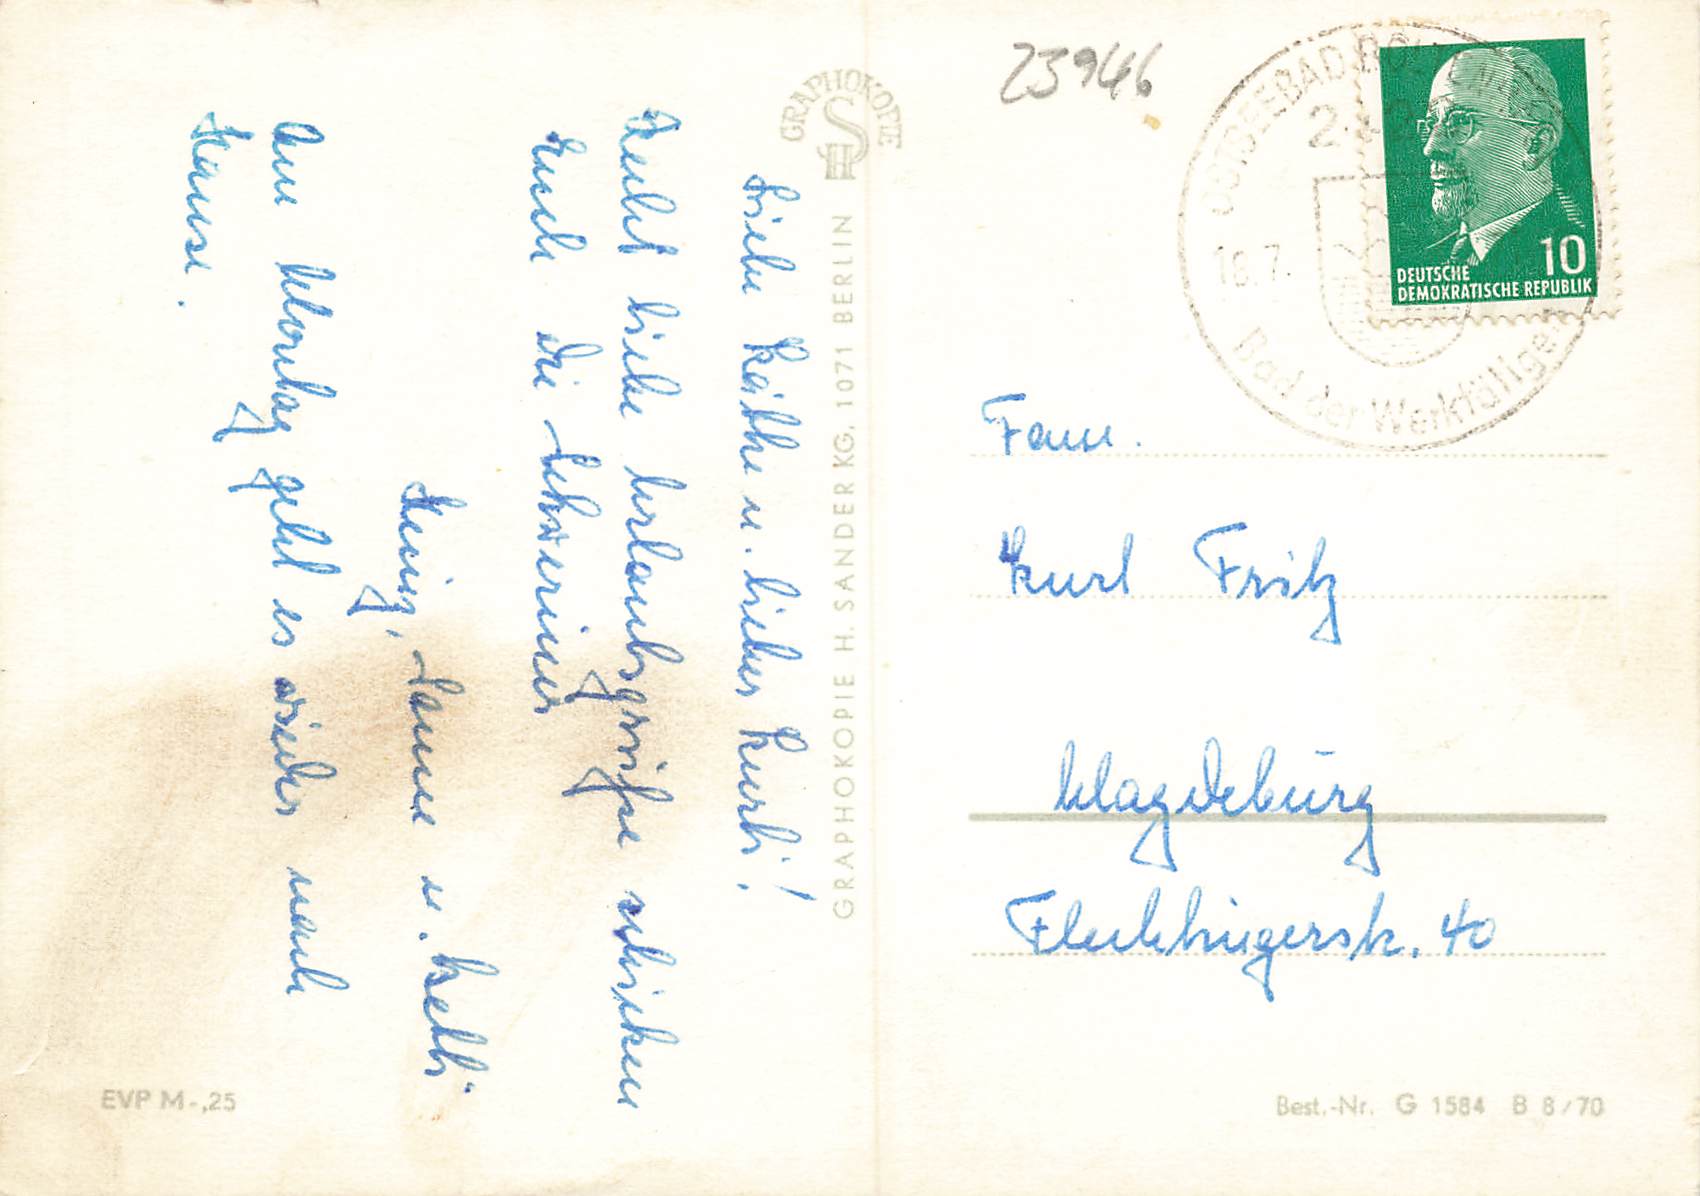 Liebe Käthe u. lieber Kurt!
Recht liebe Urlaubsgrüße schicken
Euch die Schweriner
Heinz, Hanne u. Betti
Am Montag geht es wieder nach
Hause.
GRAPHOKOPIE
H S
GRAPHOKOPIE H. SANDER KG, 1071 BERLIN
EVP M -,25
23946
OSTSEEBAD BOLTENHAGEN
18.7.
Bad der Werktätigen
10
DEUTSCHE
DEMOKRATISCHE REPUBLIK
Fam.
Kurt Fritz
Magdeburg
Flechtingerstr. 40
Best.-Nr. G 1584 B 8/70